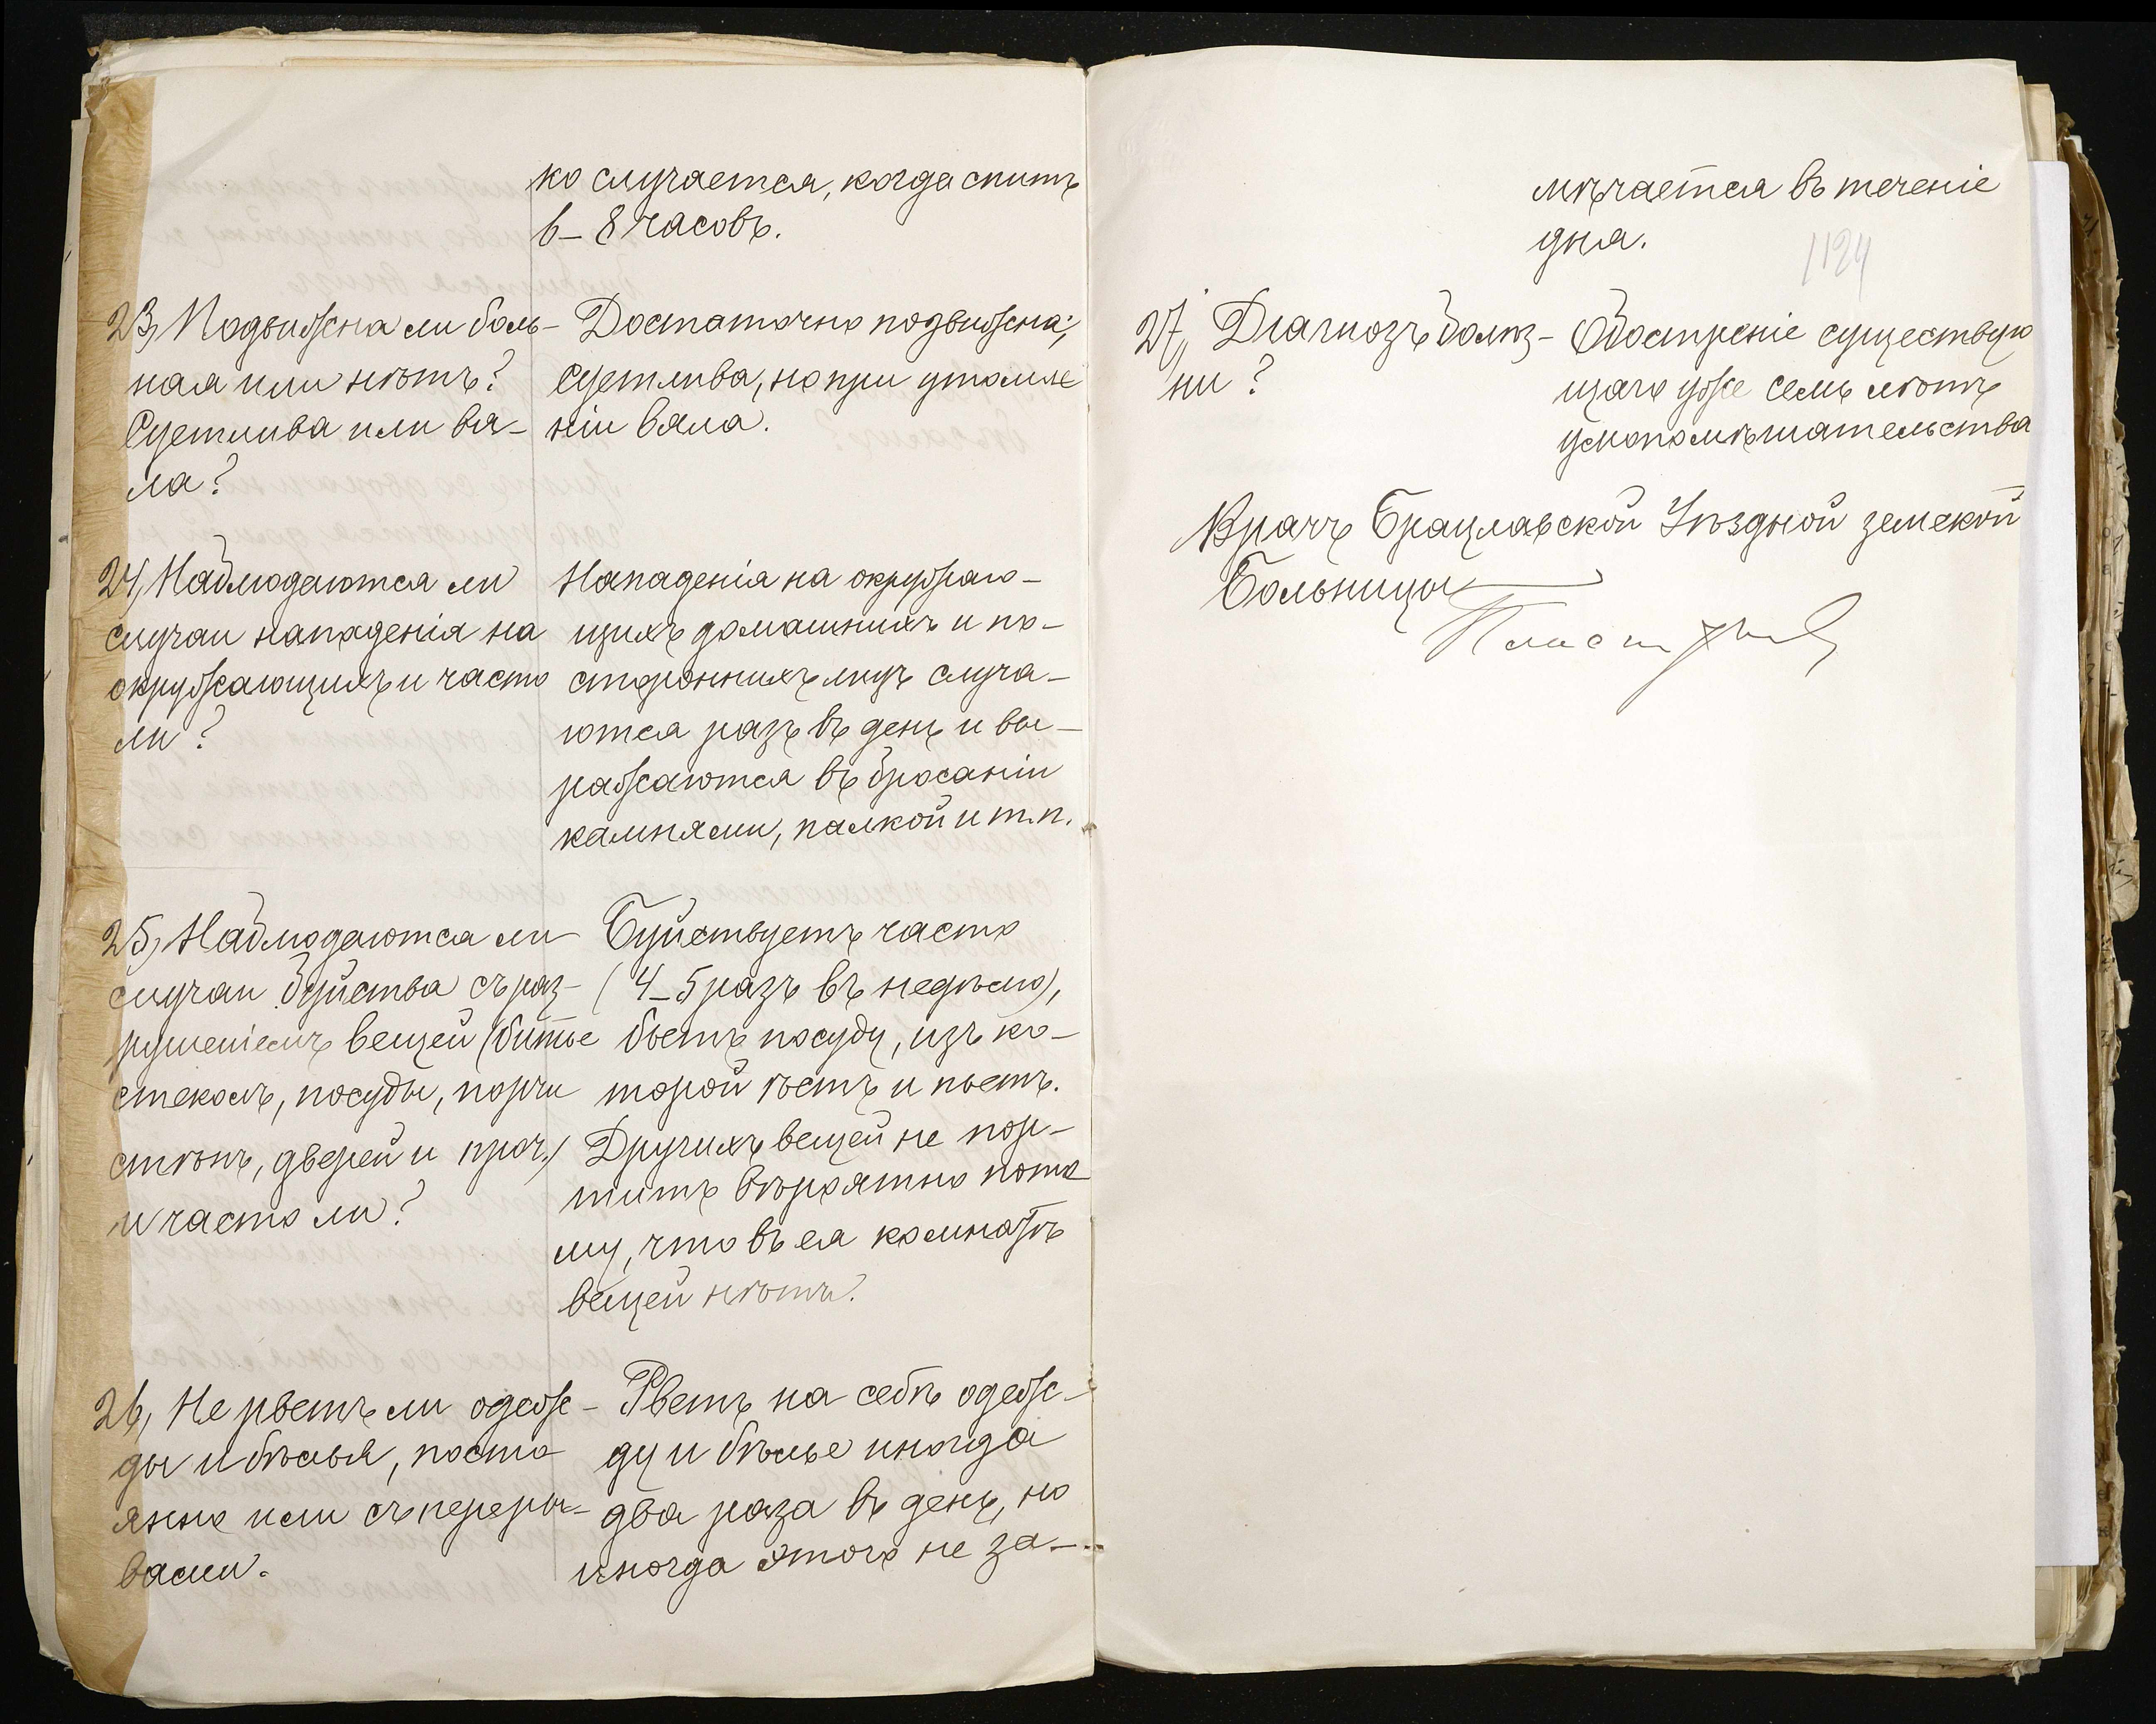 ко случается, когда спитъ
6–8 часовъ.
23, Подвижна ли боль-
ная или нѣтъ?
Суетлива или вя-
ла?
Достаточно подвижна;
Суетлива, но при утомле
ніи вяла.
24, Наблюдаются ли
случаи нападенія на
окружающихъ и часто
ли?
Нападенія на окружаю-
щихъ домашнихъ и по-
стороннихъ лицъ случа-
ются разъ въ день и вы-
ражаются въ бросаніи
камнями, палкой и т.п.
25, Наблюдаются ли
случаи буйства съ раз-
рушеніемъ вещей (битье
стеколъ, посуды, порчи
стѣнъ, дверей и проч.)
и часто ли?
Буйствуетъ часто
(4–5 разъ въ недѣлю),
бьетъ посуду, изъ ко-
торой ѣстъ и пьетъ.
Другихъ вещей не пор-
титъ вѣроятно пото
му, что въ ея комнатѣ
вещей нѣтъ.
26, Не рветъ ли одеж-
ды и бѣлья, посто
янно или съ переры-
вами.
Рветъ на себѣ одеж-
ду и бѣлье иногда
два раза въ день, но
иногда этого не за-
мѣчается въ теченіе
дня.
1124
27, Діагнозъ болѣз-
ни?
Обостреніе существую
щаго уже семь лѣтъ
умопомѣшательства
Врачъ Брацлавской Уѣздной земской
Больницы